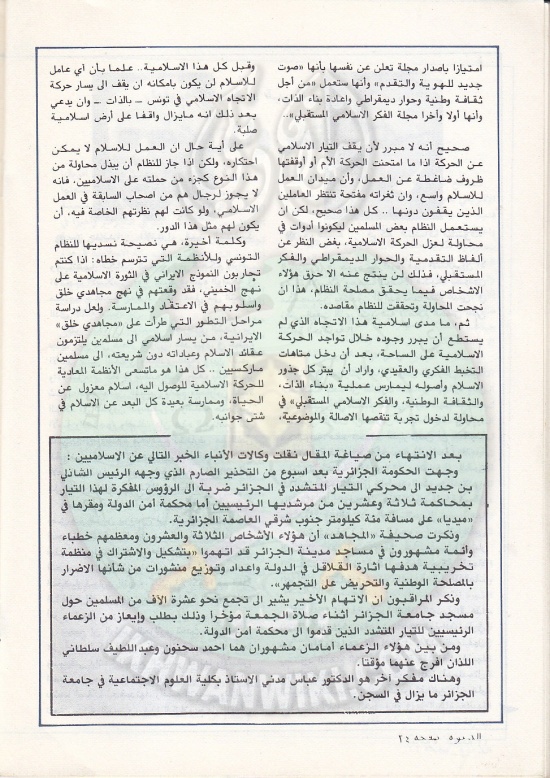 امتيازا باصدار مجلة تعلن عن نفسها بأنها «صوت
جديد للهوية والتقدم» وأنها ستعمل «من أجل
ثقافة وطنية وحوار ديمقراطي واعادة بناء الذات،
وأنها أولا وأخرا مجلة الفكر الاسلامي المستقبلي»..
صحيح أنه لا مبرر لأن يقف التيار الاسلامي
عن الحركة اذا ما امتحنت الحركة الأم أو أوقفتها
ظروف ضاغطة عن العمل، وأن ميدان العمل
للاسلام واسع، وان ثغراته مفتحة تنتظر العاملين
الذين يقفون دونها .. كل هذا صحيح، لكن ان
يستعمل النظام بعض المسلمين ليكونوا أدوات في
محاولة لعزل الحركة الاسلامية، بغض النظر عن
ألفاظ التقدمية والحوار الديمقراطي والفكر
المستقبلي، فذلك لن ينتج عنه الا حرق هؤلاء
الاشخاص فيما يحقق مصلحة النظام، هذا ان
نجحت المحاولة وتحققت للنظام مقاصده.
ثم، ما مدى اسلامية هذا الاتجاه الذي لم
يستطع أن يبرر وجوده خلال تواجد الحركة
الاسلامية على الساحة، بعد أن دخل متاهات
التخبط الفكري والعقيدي، واراد أن يبتر كل جذور
الاسلام وأصوله ليمارس عملية «بناء الذات،
والثقافة الوطنية، والفكر الاسلامي المستقبلي» في
محاولة لدخول تجربة تنقصها الاصالة والموضوعية،
وقبل كل هذا الاسلامية.. علما بأن أي عامل
للاسلام لن يكون بامكانه ان يقف الى يسار حركة
الاتجاه الاسلامي في تونس ــ بالذات ــ وان يدعي
بعد ذلك انه مايزال واقفا على أرض اسلامية
صلبة.
على أية حال ان العمل للاسلام لا يمكن
احتكاره، ولكن اذا جاز للنظام أن يبذل محاولة من
هذا النوع كجزء من حملته على الاسلاميين، فانه
لا يجوز لرجال هم من اصحاب السابقة في العمل
الاسلامي، ولو كانت لهم نظرتهم الخاصة فيه، أن
يكون لهم مثل هذا الدور.
وكلمة أخيرة، هي نصيحة نسديها للنظام
التونسي وللأنظمة التي تترسم خطاه: اذا كنتم
تحاربون النموذج الايراني في الثورة الاسلامية على
نهج الخميني، فقد وقعتهم في نهج مجاهدي خلق
واسلوبهم في الاعتقاد والممارسة. ولعل دراسة
مراحل التطور التي طرأت على «مجاهدي خلق»
الايرانية، من يسار اسلامي الى مسلمين يلتزمون
عقائد الاسلام وعباداته دون شريعته، الى مسلمين
ماركسيين .. كل هذا هو ماتسعى الأنظمة المعادية
للحركة الاسلامية للوصول اليه، اسلام معزول عن
الحياة، وممارسة بعيدة كل البعد عن الاسلام في
شتى جوانبه.
بعد الانتهاء من صياغة المقال نقلت وكالات الأنباء الخبر التالي عن الاسلاميين :
وجهت الحكومة الجزائرية بعد اسبوع من التحذير الصارم الذي وجهه الرئيس الشاذلي
بن جديد الى محركي التيار المتشدد في الجزائر ضربة الى الرؤوس المفكرة لهذا التيار
بمحاكمة ثلاثة وعشرين من مرشديها الرئيسيين أما محكمة أمن الدولة ومقرها في
«ميديا» على مسافة مئة كيلومتر جنوب شرقي العاصمة الجزائرية.
وذكرت صحيفة «المجاهد» أن هؤلاء الأشخاص الثلاثة والعشرون ومعظمهم خطباء
وأئمة مشهورون في مساجد مدينة الجزائر قد اتهموا «بتشكيل والاشتراك في منظمة
تخريبية هدفها اثارة القلاقل في الدولة واعداد وتوزيع منشورات من شأنها الاضرار
بالمصلحة الوطنية والتحريض على التجمهر».
وذكر المراقبون ان الاتهام الأخير يشير الى تجمع نحو عشرة الآف من المسلمين حول
مسجد جامعة الجزائر أثناء صلاة الجمعة مؤخرا وذلك بطلب وإيعاز من الزعماء
الرئيسيين للتيار المتشدد الذين قدموا الى محكمة أمن الدولة.
ومن بين هؤلاء الزعماء أمامان مشهوران هما احمد سحنون وعبد اللطيف سلطاني
اللذان افرج عنهما مؤقتا.
وهناك مفكر آخر هو الدكتور عباس مدني الاستاذ بكلية العلوم الاجتماعية في جامعة
الجزائر ما يزال في السجن.
الدعوة صفحة ٢٤